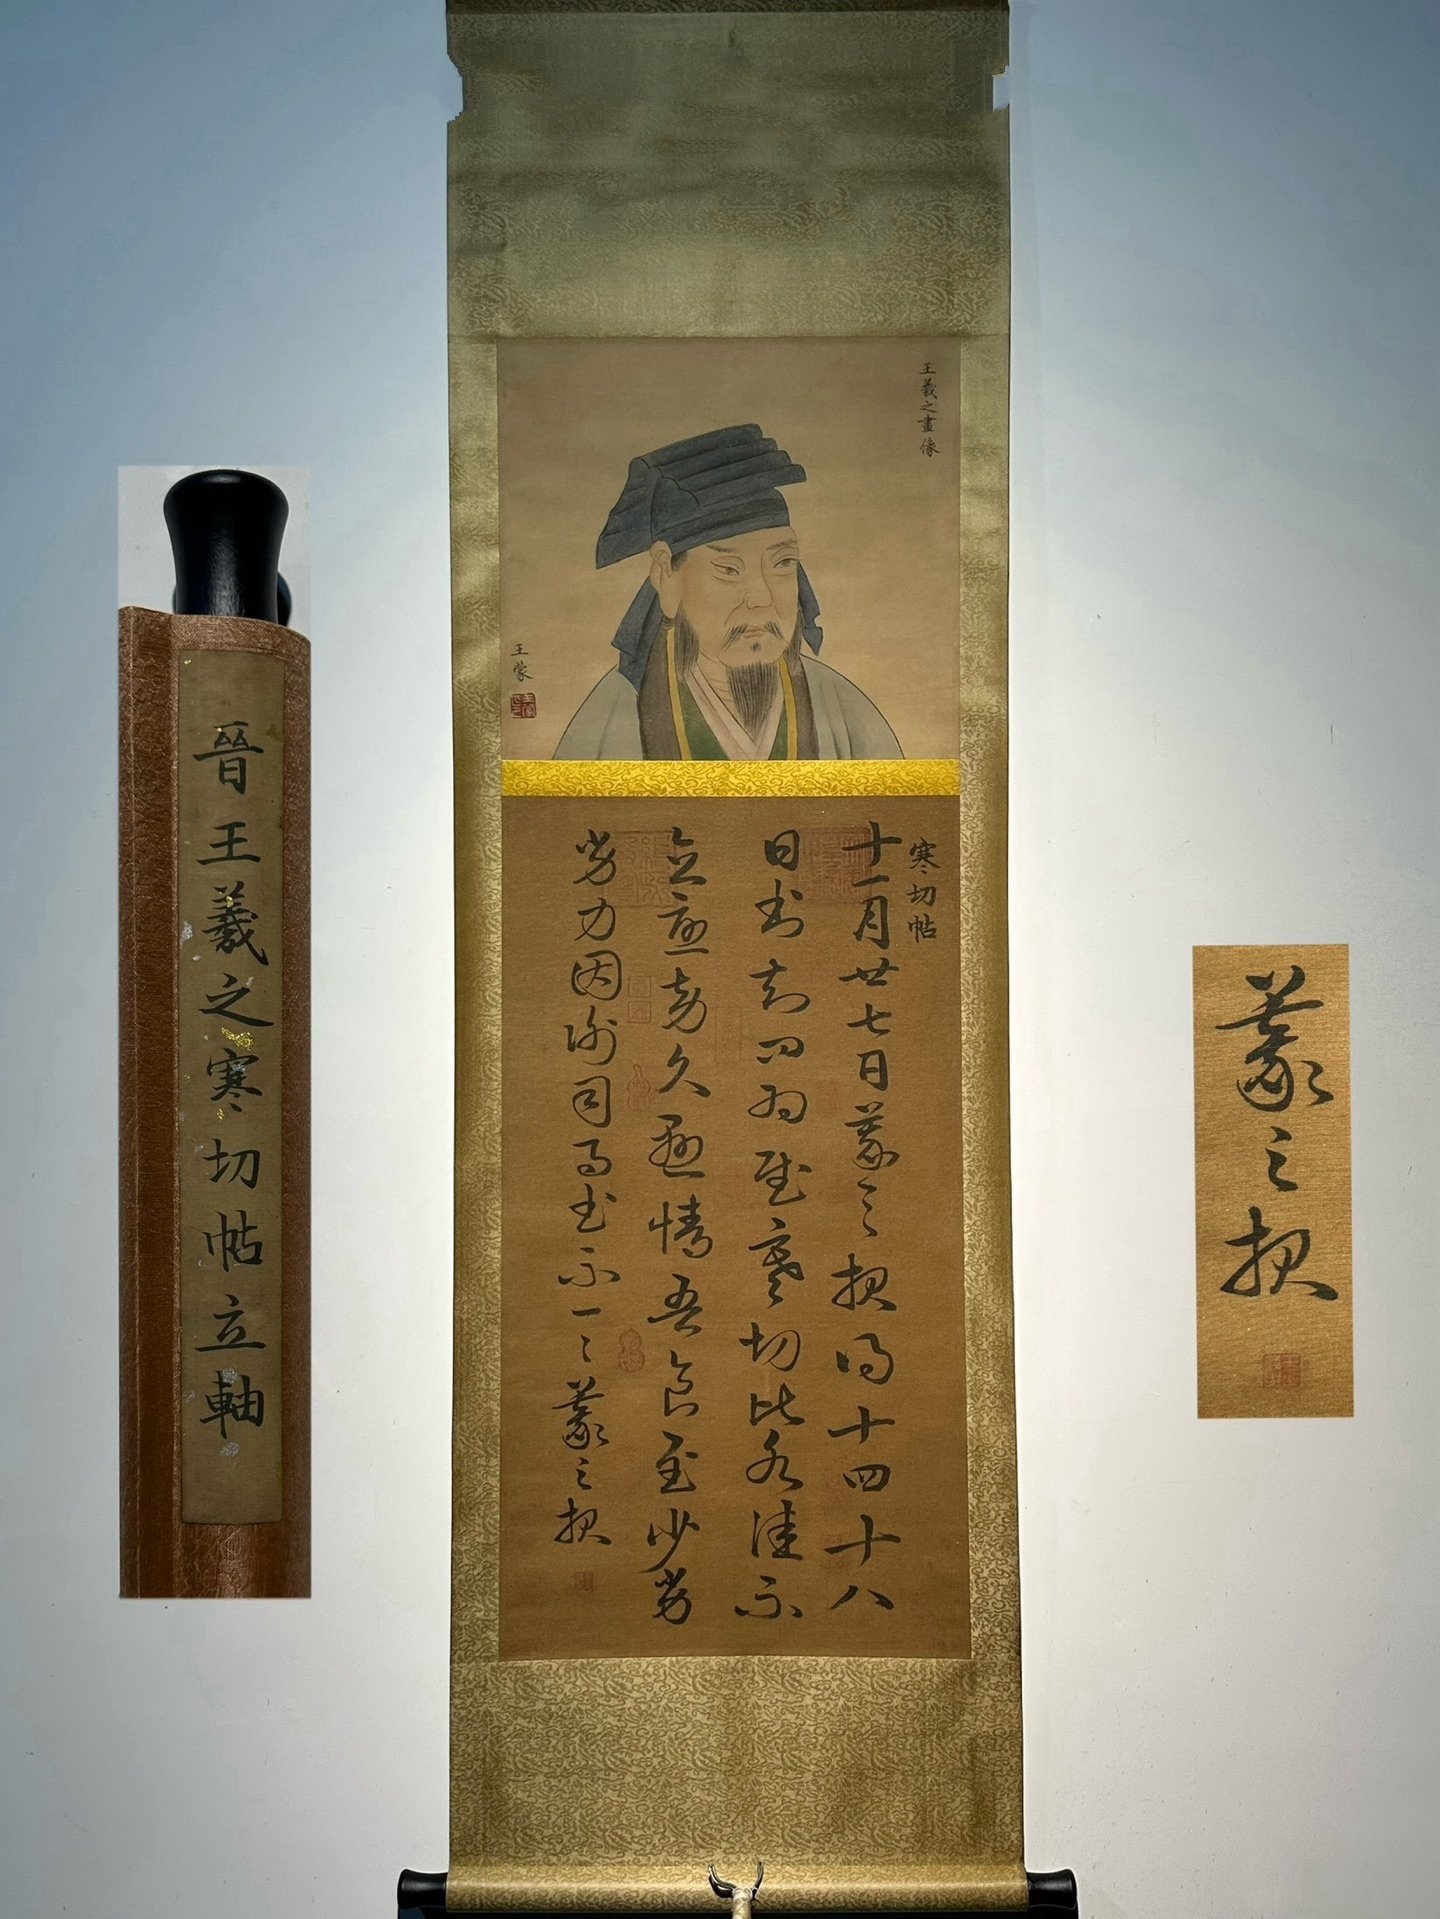 晉王羲之寒切帖立軸
王羲之畫像
王蒙
寒切帖
十一月廿七日羲之報得十四十八
日書知問為慰寒切比各佳不
念憂勞久懸情吾食至少劣
劣力因謝司馬書不一一羲之報
羲之報